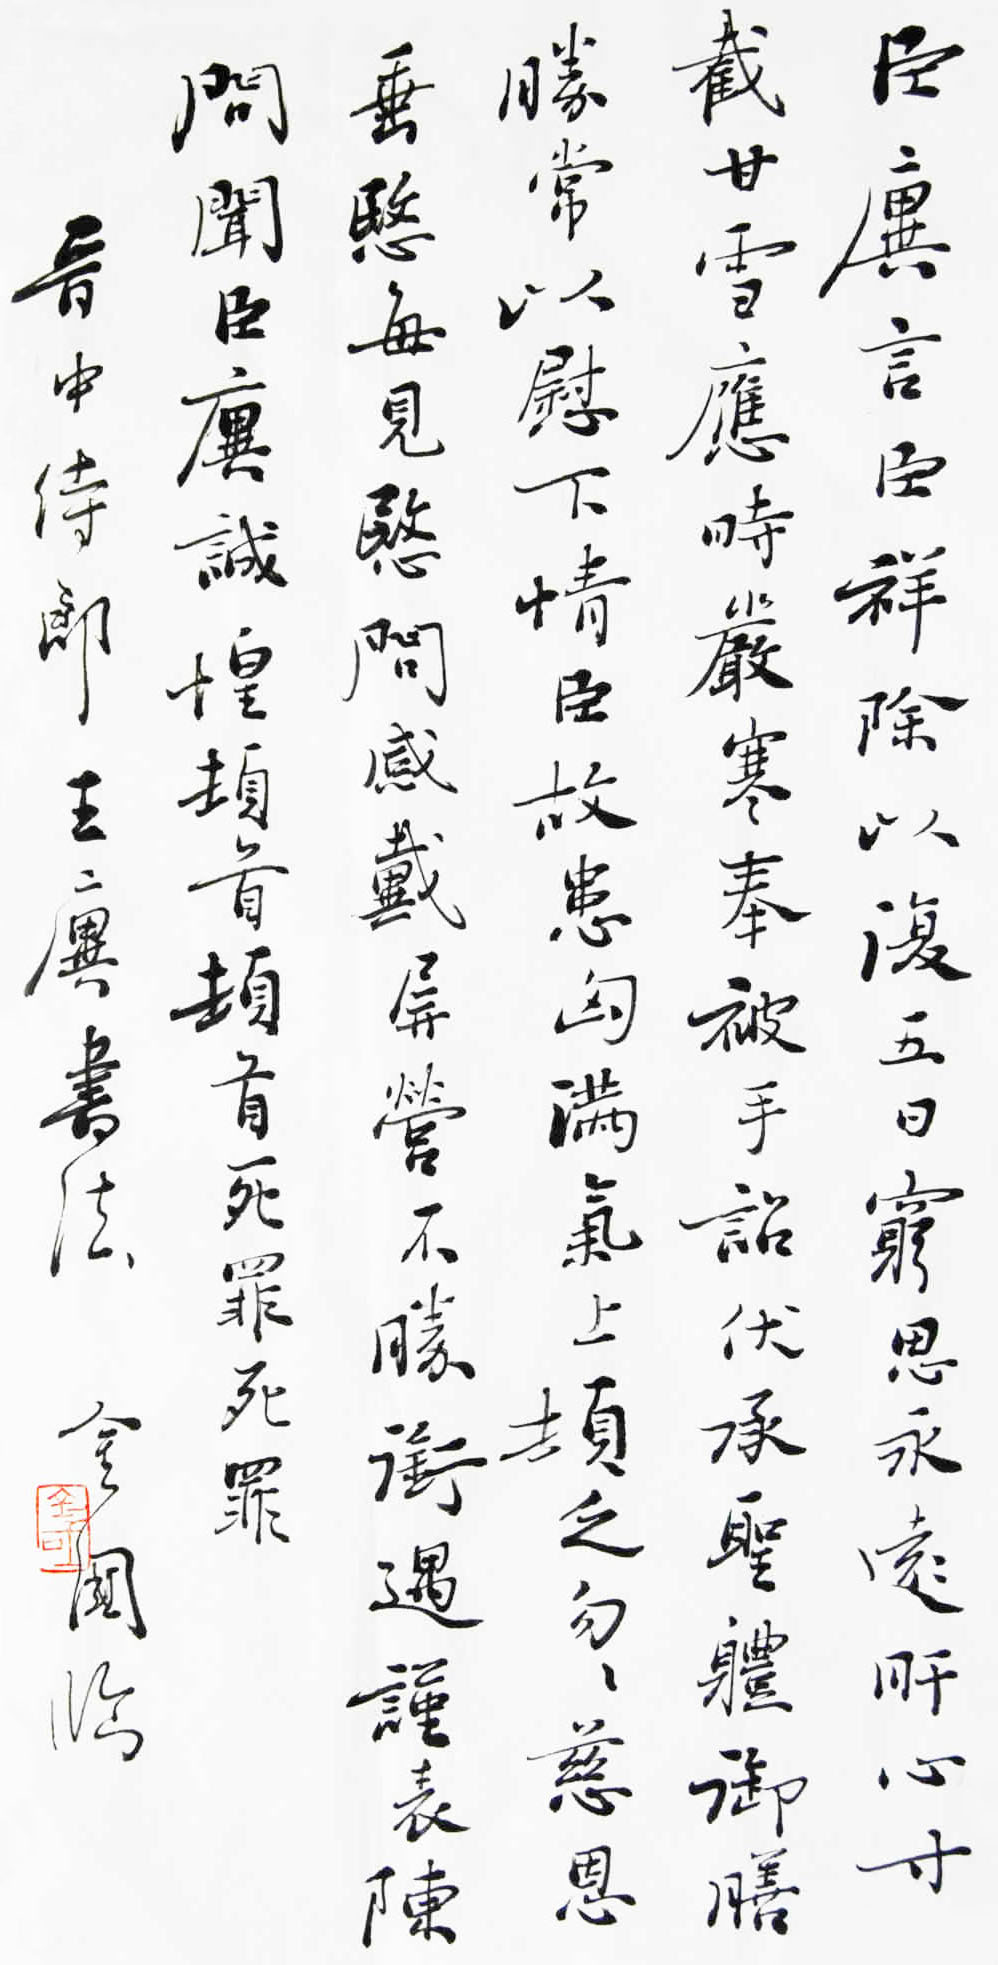 臣廙言臣祥除以復五日窮思永遠肝心寸
截甘雪應時嚴寒奉被手詔伏承聖體御膳
勝常以慰下情臣故患匈滿氣上頓乏勿〻慈恩
垂愍每見愍問感戴屏營不勝銜遇謹表陳
問聞臣廙誠惶頓首頓首死罪死罪
晉中侍郎王廙書法 金國臨